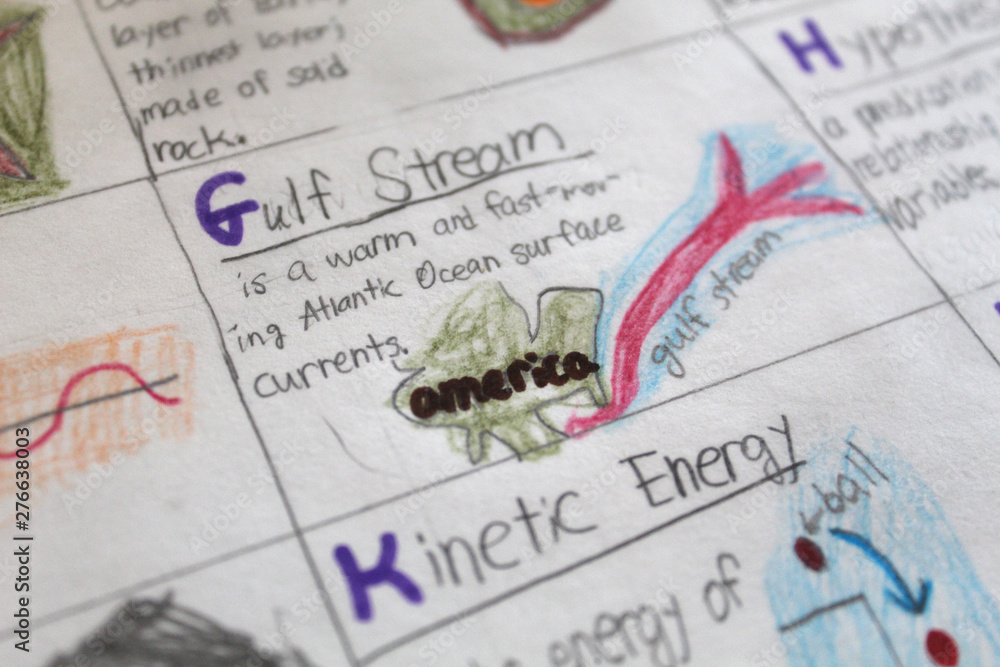 layer of
thinnest layer;
made of solid
rock.
Gulf Stream
is a warm and fast-mov-
ing Atlantic Ocean surface
currents.
america
gulf stream
Hypothesis
a predication
relationship
variables
Kinetic Energy
energy of
ball
Adobe Stock | #276638003